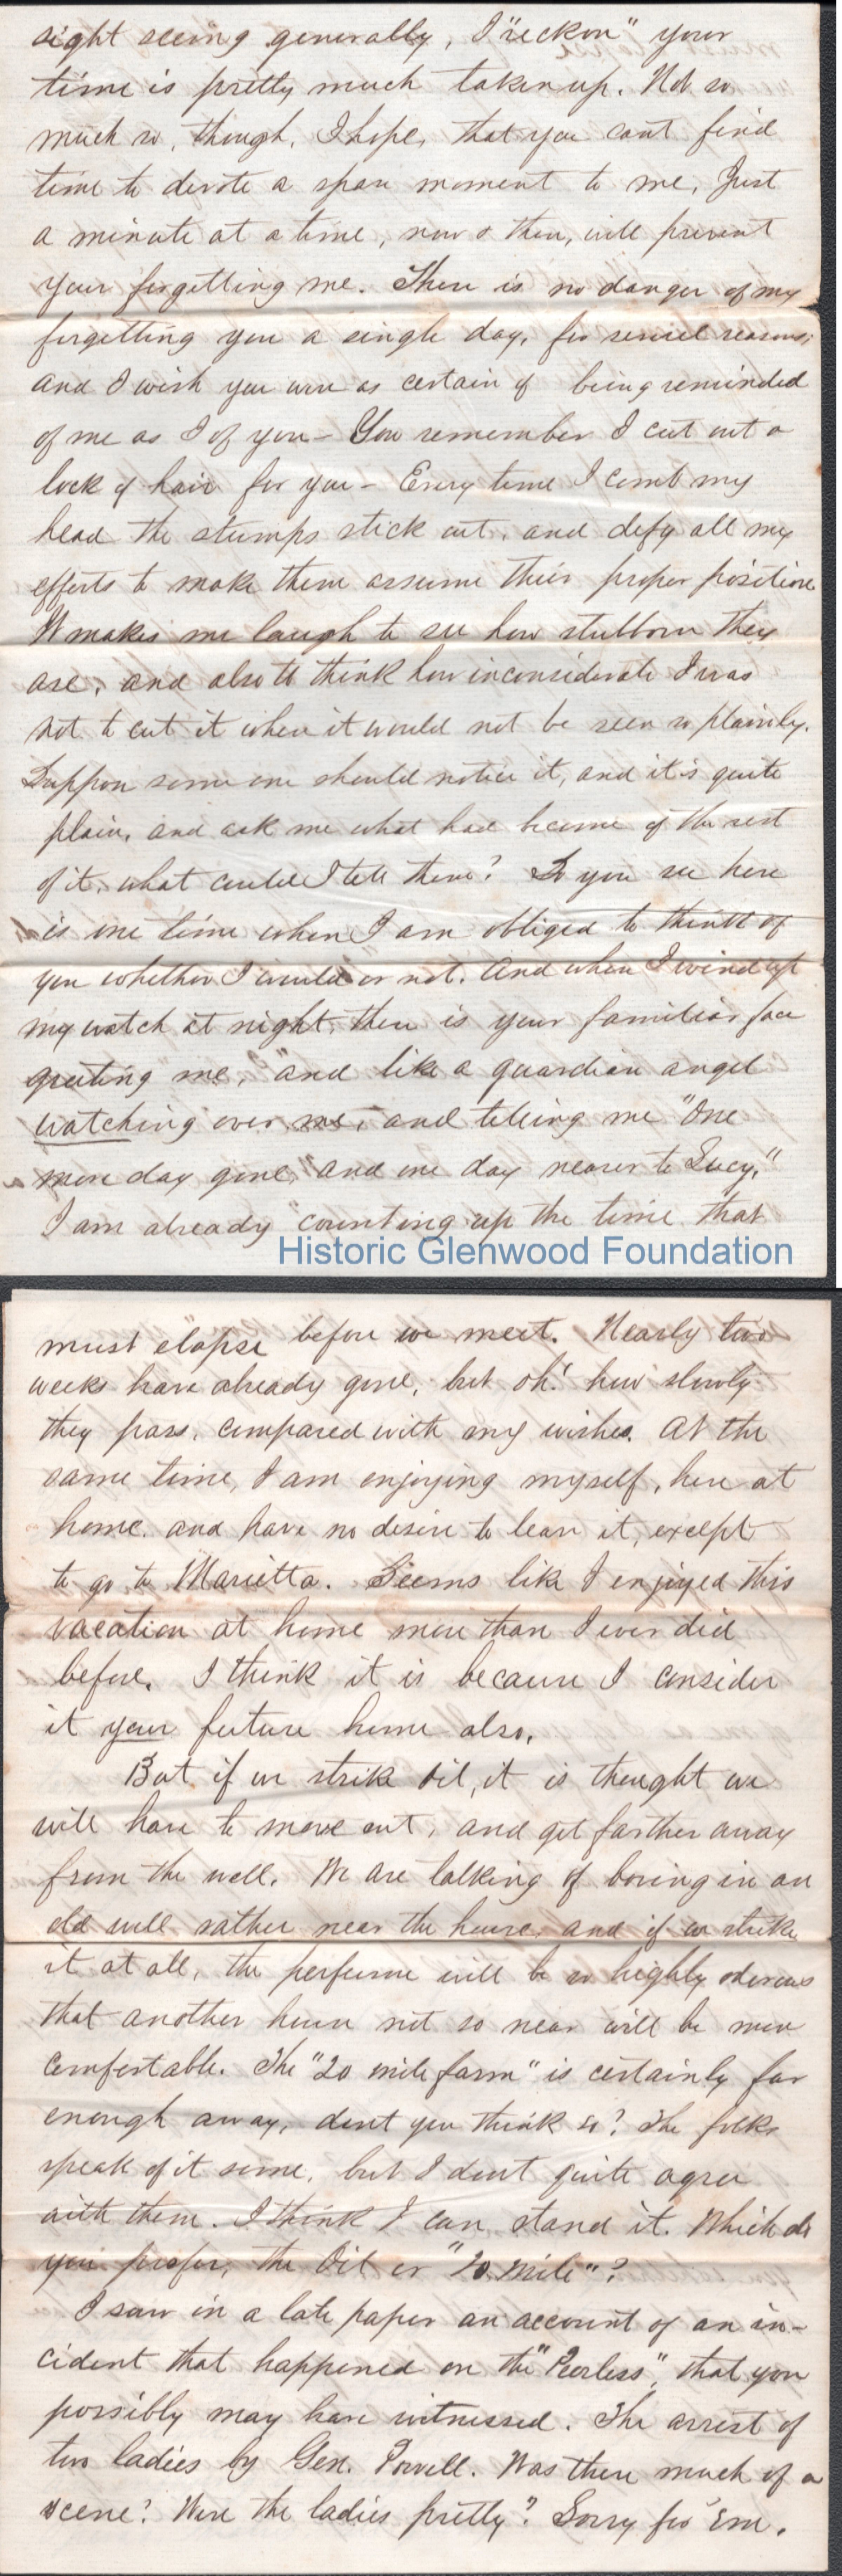 sight seeing generally, I "reckon" your
time is pretty much taken up. Not so
much so, though, I hope, that you cant find
time to devote a spare moment to me. Just
a minute at a time, now & then, will prevent
your forgetting me. There is no danger of my
forgetting you a single day, for several reasons;
and I wish you were as certain of being reminded
of me as I of you – You remember I cut out a
lock of hair for you – Every time I comb my
head the stumps stick out, and defy all my
efforts to make them assume their proper position.
It makes me laugh to see how stubborn they
are, and also to think how inconsiderate I was
not to cut it where it would not be seen so plainly.
Suppose some one should notice it, and it is quite
plain, and ask me what had become of the rest
of it, what could I tell them? So you see here
is one time when I am obliged to think of
you whether I would or not. And when I wind up
my watch at night, there is your familiar face
greeting me, and like a guardian angel
watching over me, and telling me "One
more day gone, and one day nearer to Lucy."
I am already counting up the time that
Historic Glenwood Foundation
must elapse before we meet. Nearly two
weeks have already gone, but oh! how slowly
they pass, compared with my wishes. At the
same time, I am enjoying myself, here at
home, and have no desire to leave it, except
to go to Marietta. Seems like I enjoyed this
vacation at home more than I ever did
before. I think it is because I consider
it your future home also.
But if we strike oil, it is thought we
will have to move out, and get farther away
from the well. We are talking of boring in an
old well rather near the house, and if we strike
it at all, the perfume will be so highly odorous
that another house not so near will be more
comfortable. The "20 mile farm" is certainly far
enough away, dont you think so? The folks
speak of it some, but I dont quite agree
with them. I think I can stand it. Which do
you prefer, the Oil or "20 mile"?
I saw in a late paper an account of an in-
cident that happened on the "Peerless", that you
possibly may have witnessed. The arrest of
two ladies by Gen. Powell. Was there much of a
scene? Were the ladies pretty? Sorry for 'em.